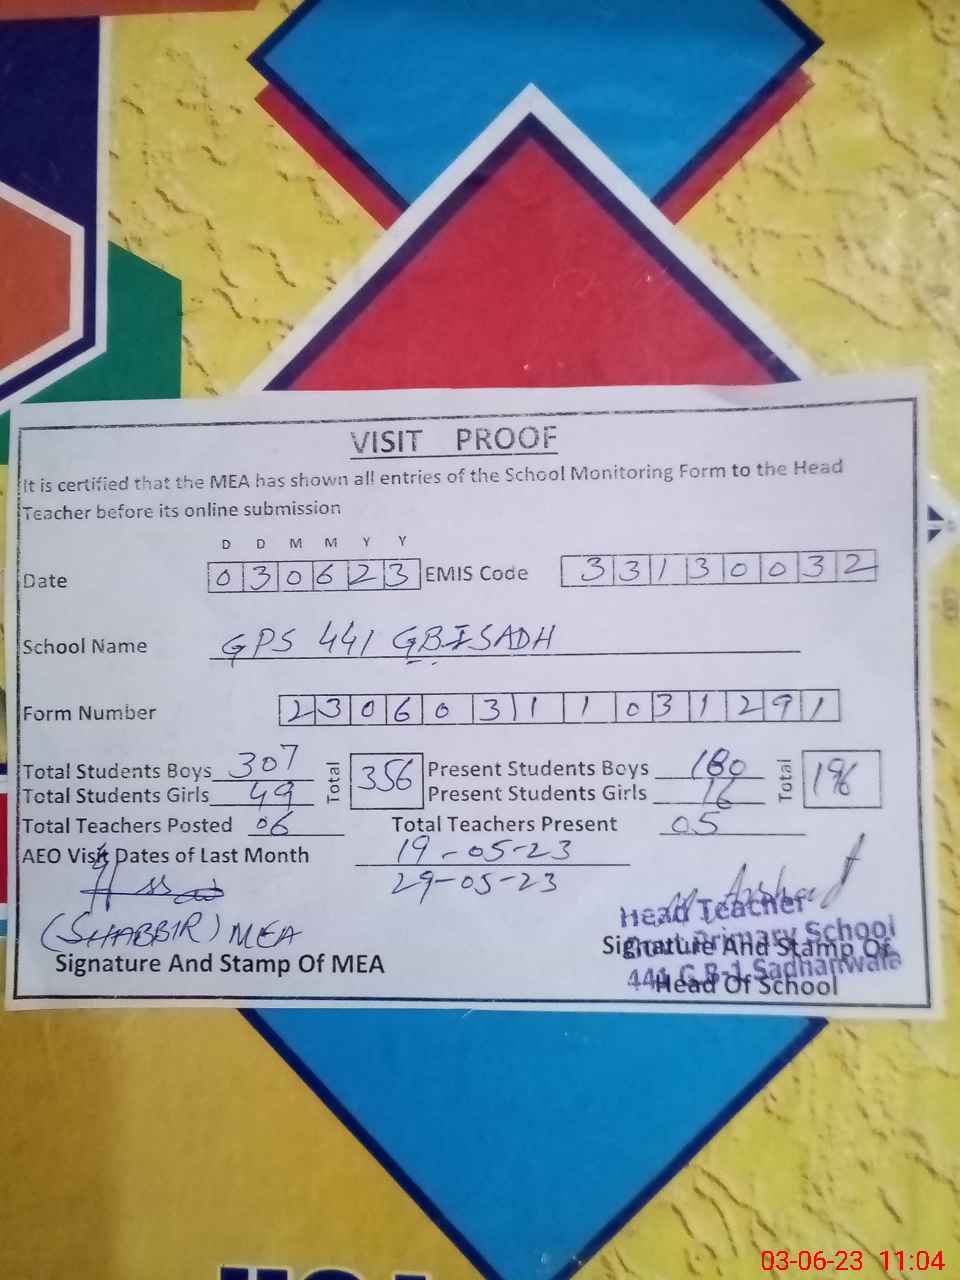 VISIT PROOF
It is certified that the MEA has shown all entries of the School Monitoring Form to the Head
Teacher before its online submission
D D M M Y Y
Date 0 3 0 6 2 3 EMIS Code 3 3 1 3 0 0 3 2
School Name GPS 441 GBISADH
Form Number 2 3 0 6 0 3 1 1 0 3 1 2 9 1
Total Students Boys 307 Total 356 Present Students Boys 180 Total 196
Total Students Girls 49 Present Students Girls 16
Total Teachers Posted 06 Total Teachers Present 05
AEO Visit Dates of Last Month 19-05-23
29-05-23
(SHABBIR) MEA
Signature And Stamp Of MEA
Head Teacher
Primary School
Signature And Stamp Of
441 G.B-1 Sadhanwala
Head Of School
03-06-23 11:04